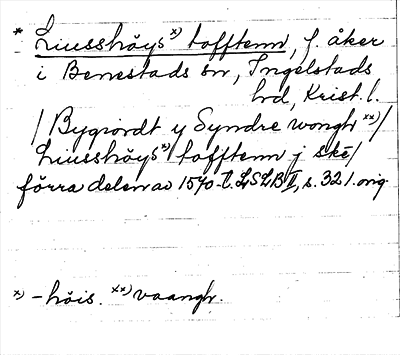 * Liusshöys x) tofftenn, f. åker
i Benestads sn, Ingelstads
hd, Krist. l.
/ Bygrordt y Syndre wongh xx)/
Liusshöys x) tofftenn j skē/
förra delen av 1570-t. LSLB II, s. 321. orig.
x) -höis. xx) vaangh.